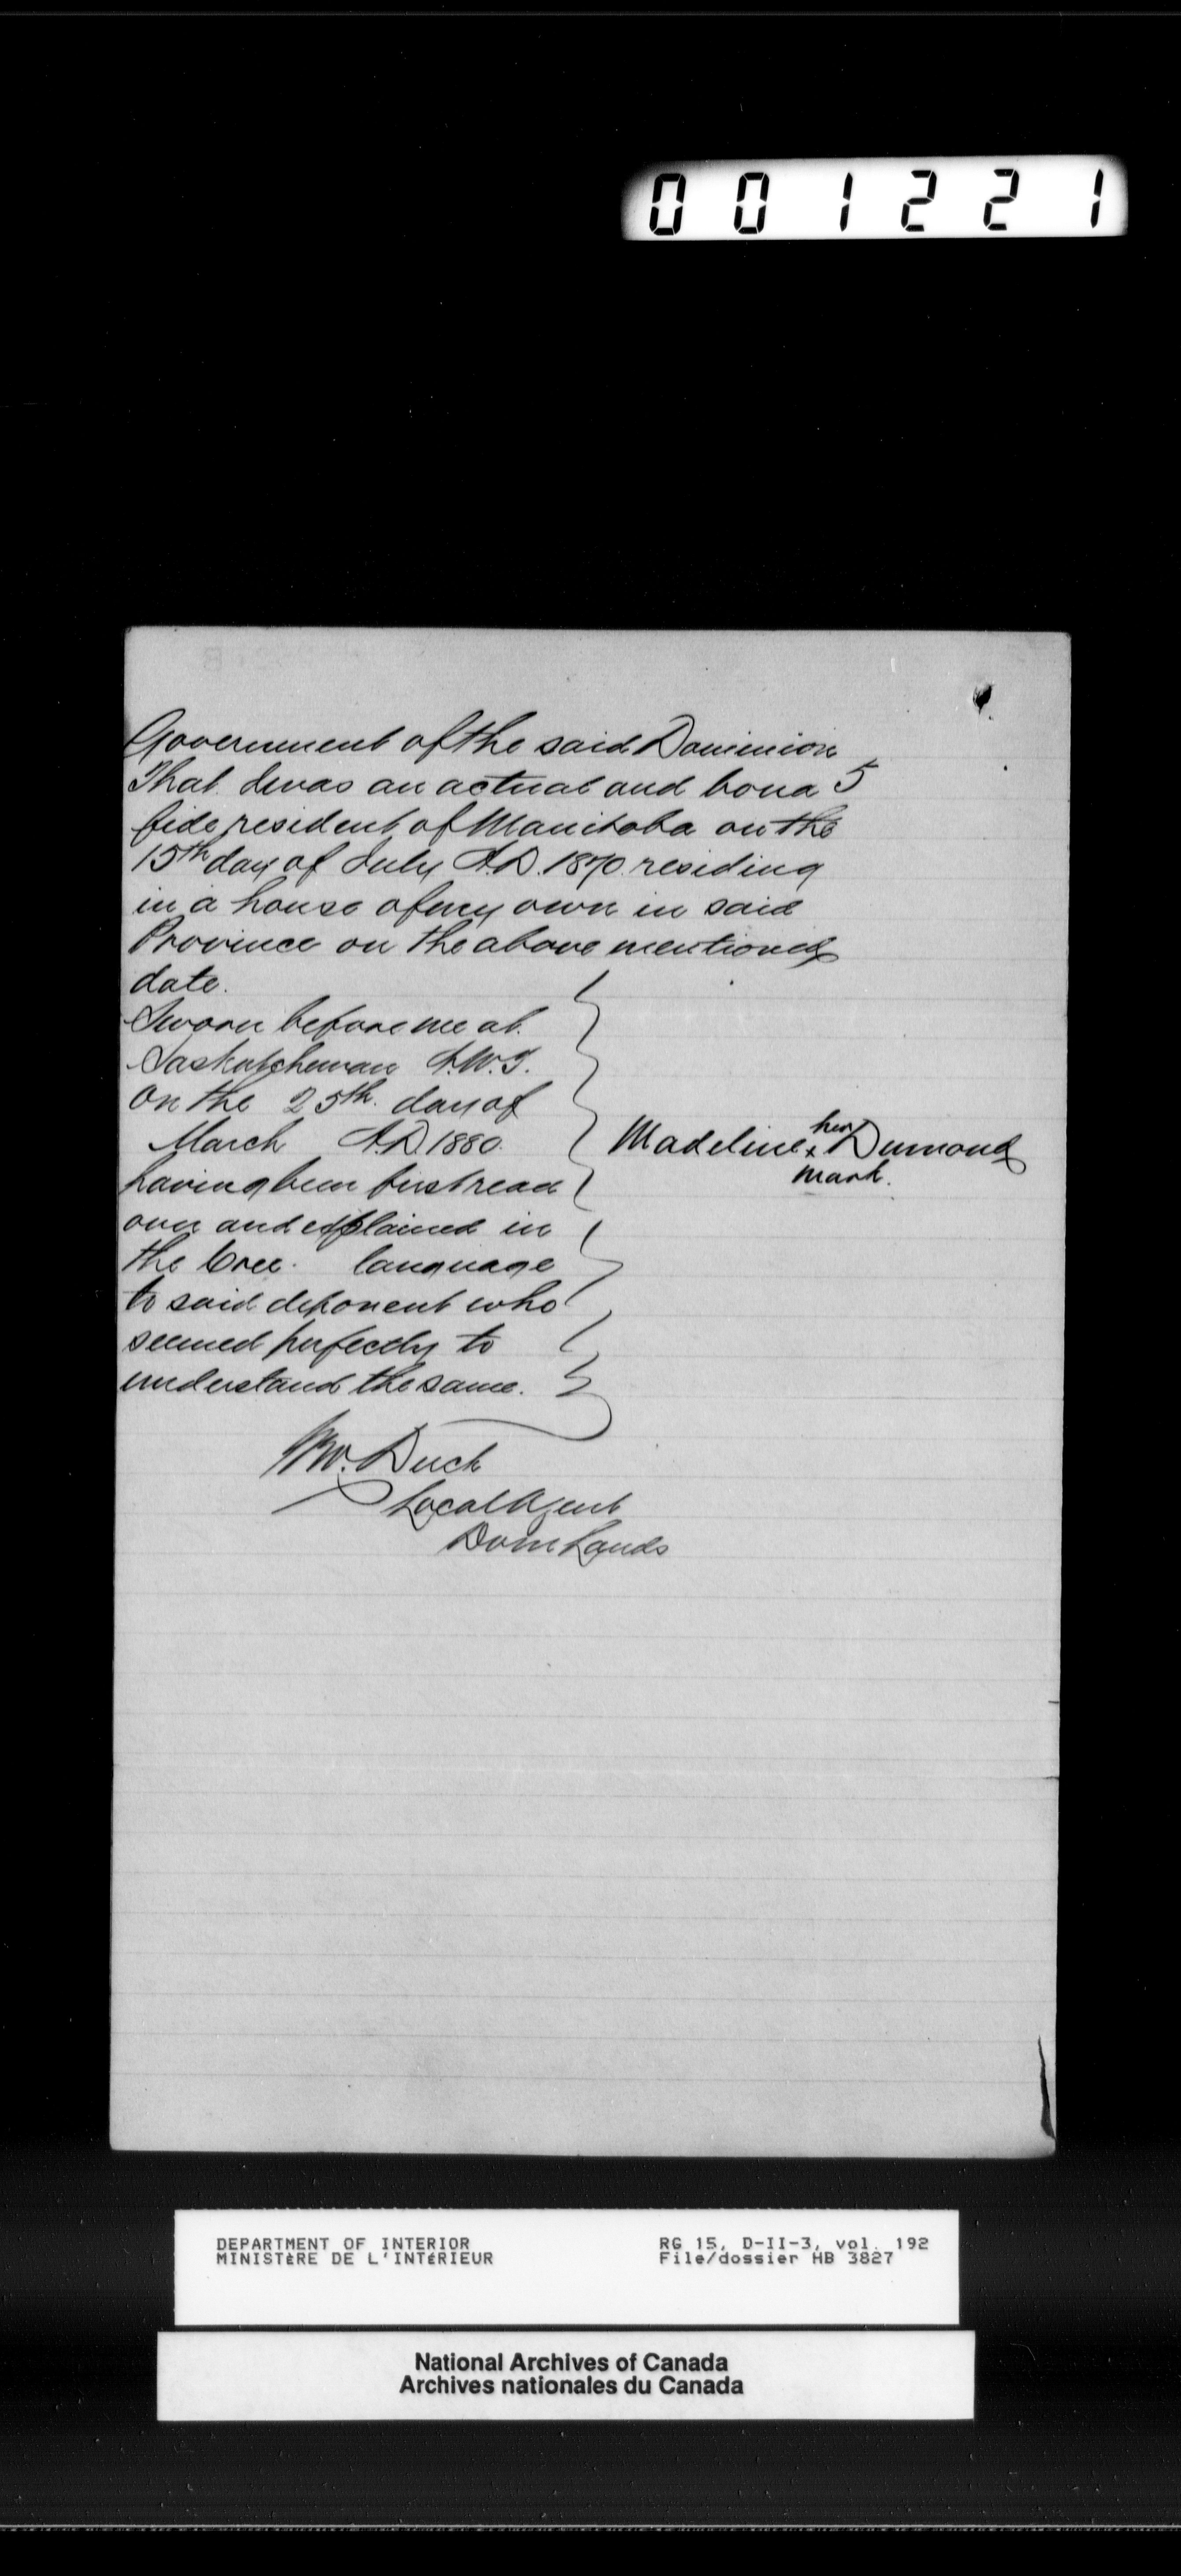 001221
Government of the said Dominion
That I was an actual and bona 5
fide resident of Manitoba on the
15th day of July A.D. 1870 residing
in a house of my own in said
Province on the above mentioned
date.
Sworn before me at
Saskatchewan N.W.T.
On the 25th day of
March A.D. 1880.
having been first read
over and explained in
the Cree language
to said deponent who
seemed perfectly to
understand the same.
her
Madeline x Dumond
mark.
Duck
Local Agent
Dom Lands
DEPARTMENT OF INTERIOR
MINISTÈRE DE L'INTÉRIEUR
RG 15, D-II-3, vol. 192
File/dossier HB 3827
National Archives of Canada
Archives nationales du Canada